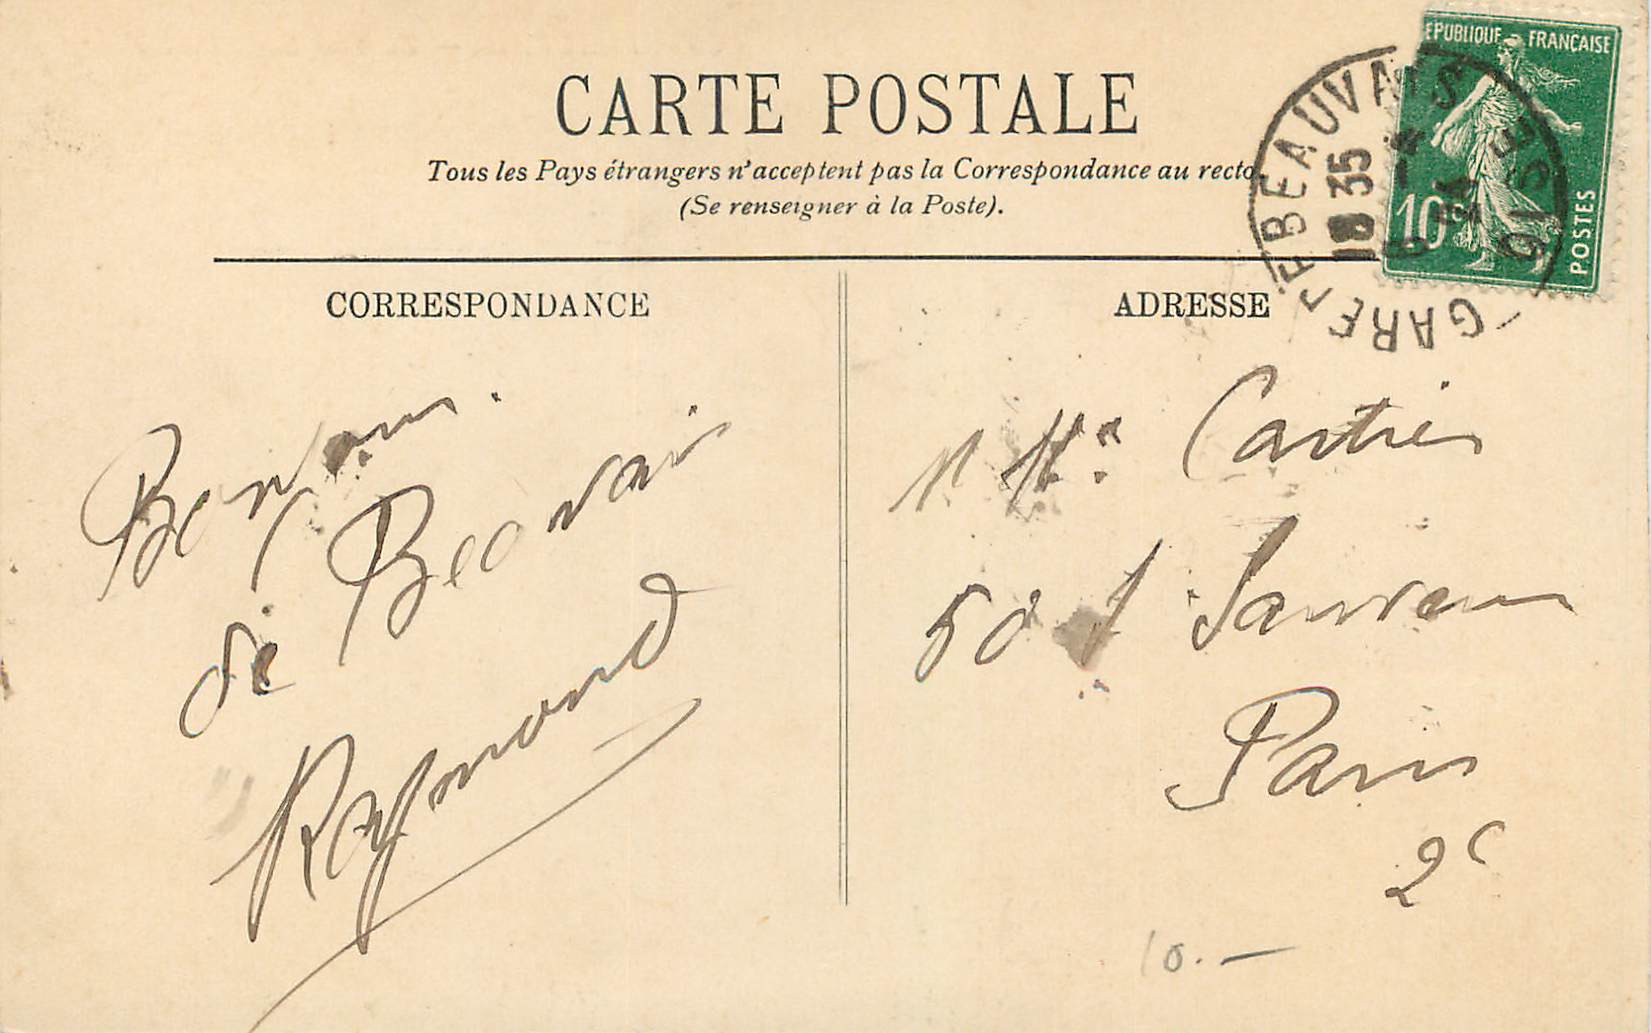 CARTE POSTALE
Tous les Pays étrangers n'acceptent pas la Correspondance au recto
(Se renseigner à la Poste).
EPUBLIQUE FRANÇAISE
10c
POSTES
GARE DE BEAUVAIS
OISE
18 35
CORRESPONDANCE
ADRESSE
Bonjour
de Beauvais
Raymond
Cartier
50 St Sauveur
Paris
2e
10.-